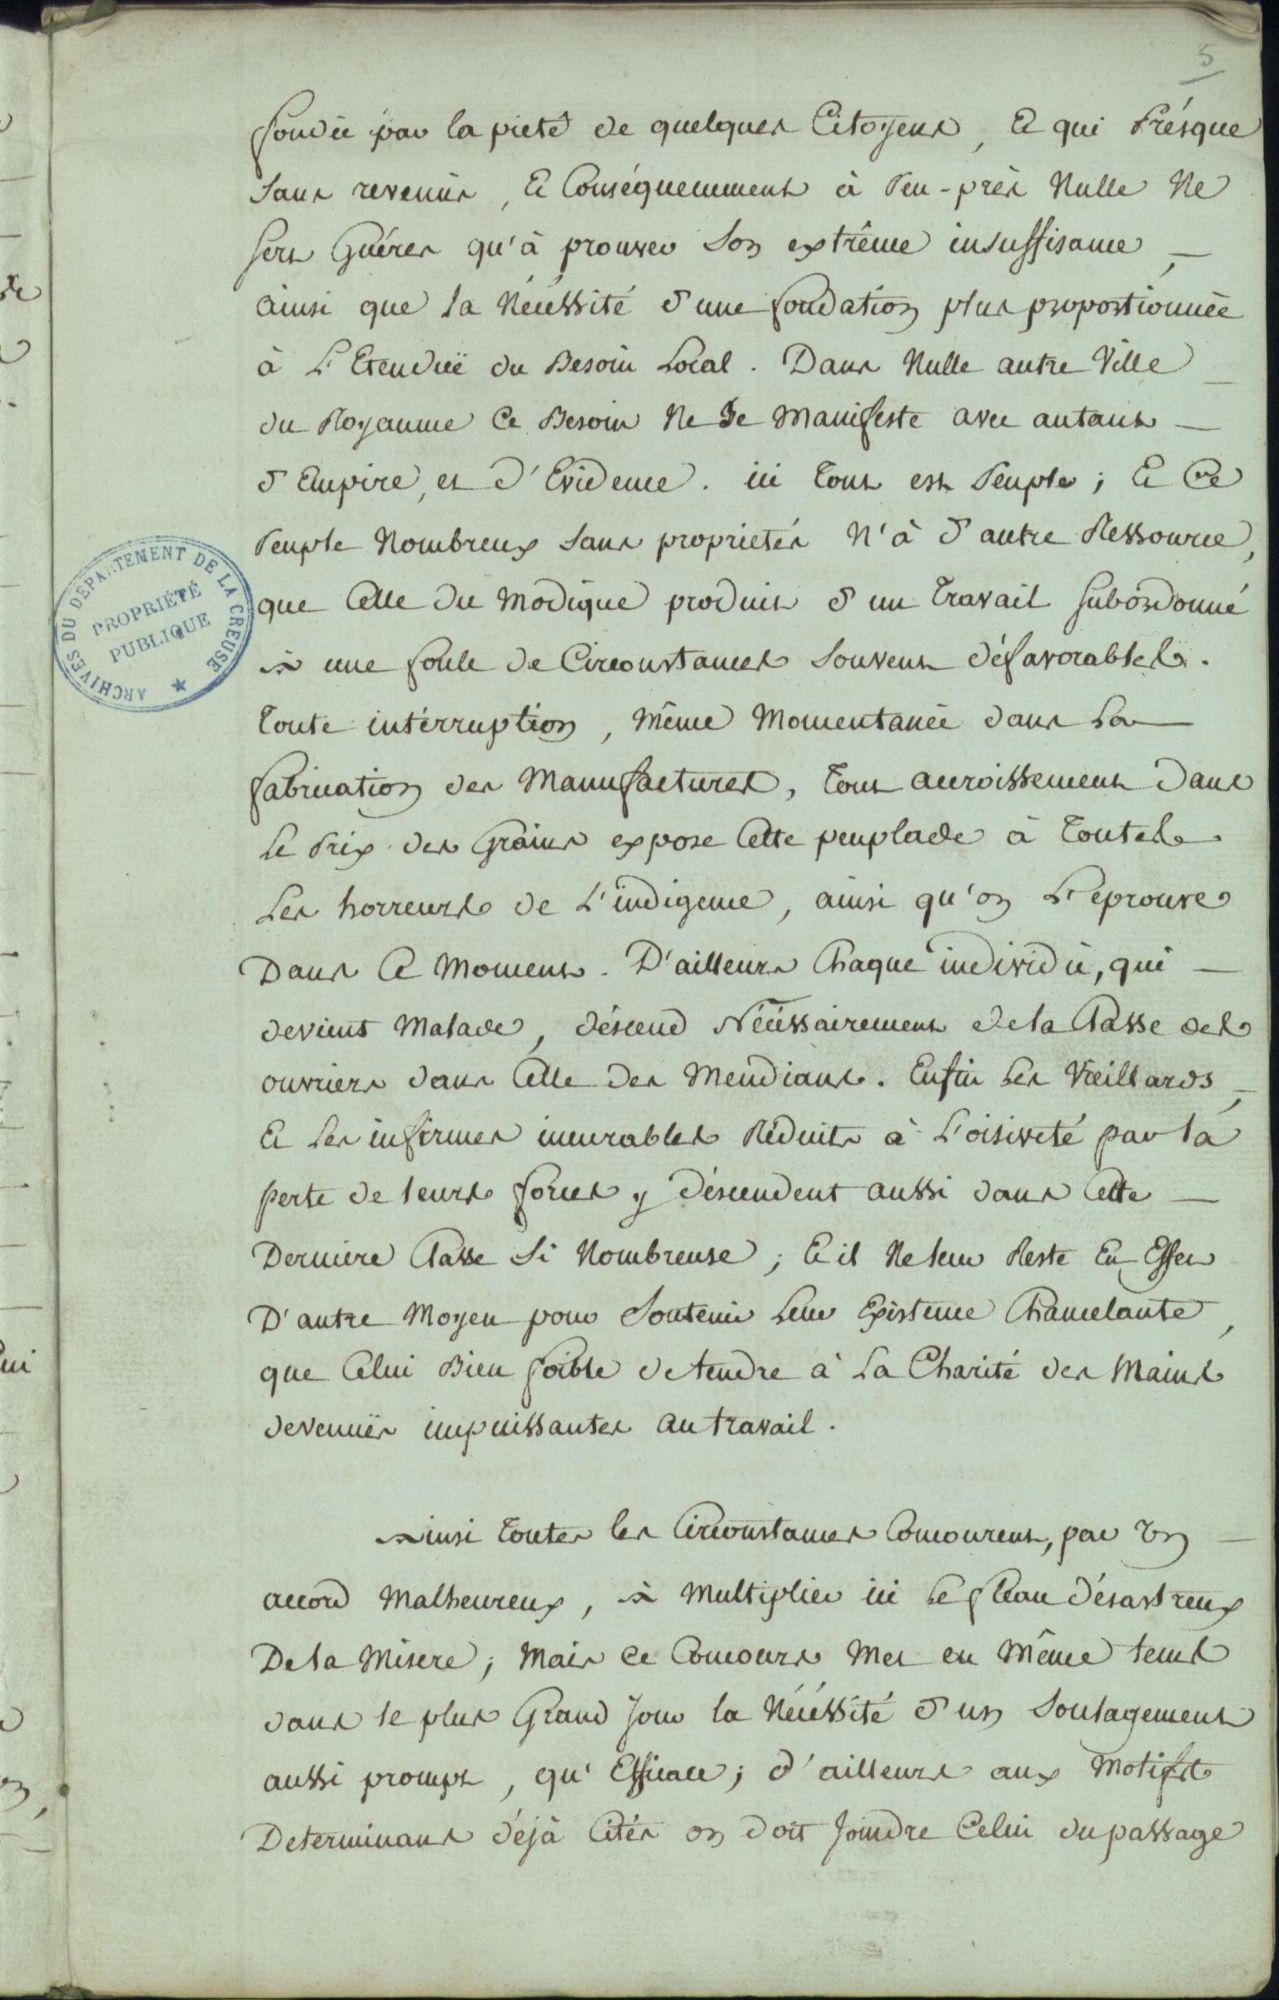 5
fondée par la pieté de quelques Citoyens, Et qui Présque
Sans revenus, Et Conséquemment à Peu-près Nulle Ne
Sert Guéres qu'à prouver Son extrême insuffisance,
ainsi que la Nécéssité d'une fondation plus proportionnée
à L'Etenduë du Besoin Local. Dans Nulle autre Ville
du Royaume Ce Besoin Ne Se Manifeste avec autant
d'Empire, et d'Evidence. ici tout est Peuple; Et Ce
Peuple Nombreux Sans proprietés N'à d'autre Ressource,
que Celle du Modique produit d'un travail Subórdonné
à une foule de Circonstances Souvent défavorables.
toute intérruption, Même Momentanée dans La
fabrication des Manufactures, tout accroissement dans
Le Prix des Grains expose Cette peuplade à toutes
Les horreurs de L'indigence, ainsi qu'on L'eprouve
Dans Ce Moment. D'ailleurs Chaque individu, qui
devient Malade, déscend Nécéssairement de la Classe des
ouvriers dans Celle des Mendians. Enfin Les Vieillards,
Et Les infirmes incurables Réduits à L'oisiveté par la
perte de leurs forces y déscendent aussi dans Cette
Derniere Classe Si Nombreuse; Et il Ne leur Reste En Effet
D'autre Moyen pour Soutenir Leur Existence Chancelante,
que Celui Bien foible de tendre à La Charité des Mains
devenuës impuissantes au travail.
Ainsi toutes les Circonstances Concourent, par Un
accord Malheureux, à Multiplier ici Le fleau désastreux
De la Misere; Mais Ce Concours Met en Même tems
dans le plus Grand Jour la Nécéssité d'un Soulagement
aussi prompt, qu'Efficace; d'ailleurs aux Motifs
Determinans déjà Cités on doit Joindre Celui du passage
ARCHIVES DU DÉPARTEMENT DE LA CREUSE
PROPRIÉTÉ
PUBLIQUE